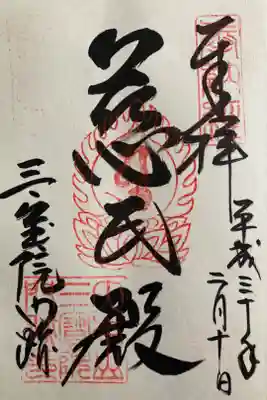 奉拝
平成三十年
二月十日
慈氏殿
三寳院門跡